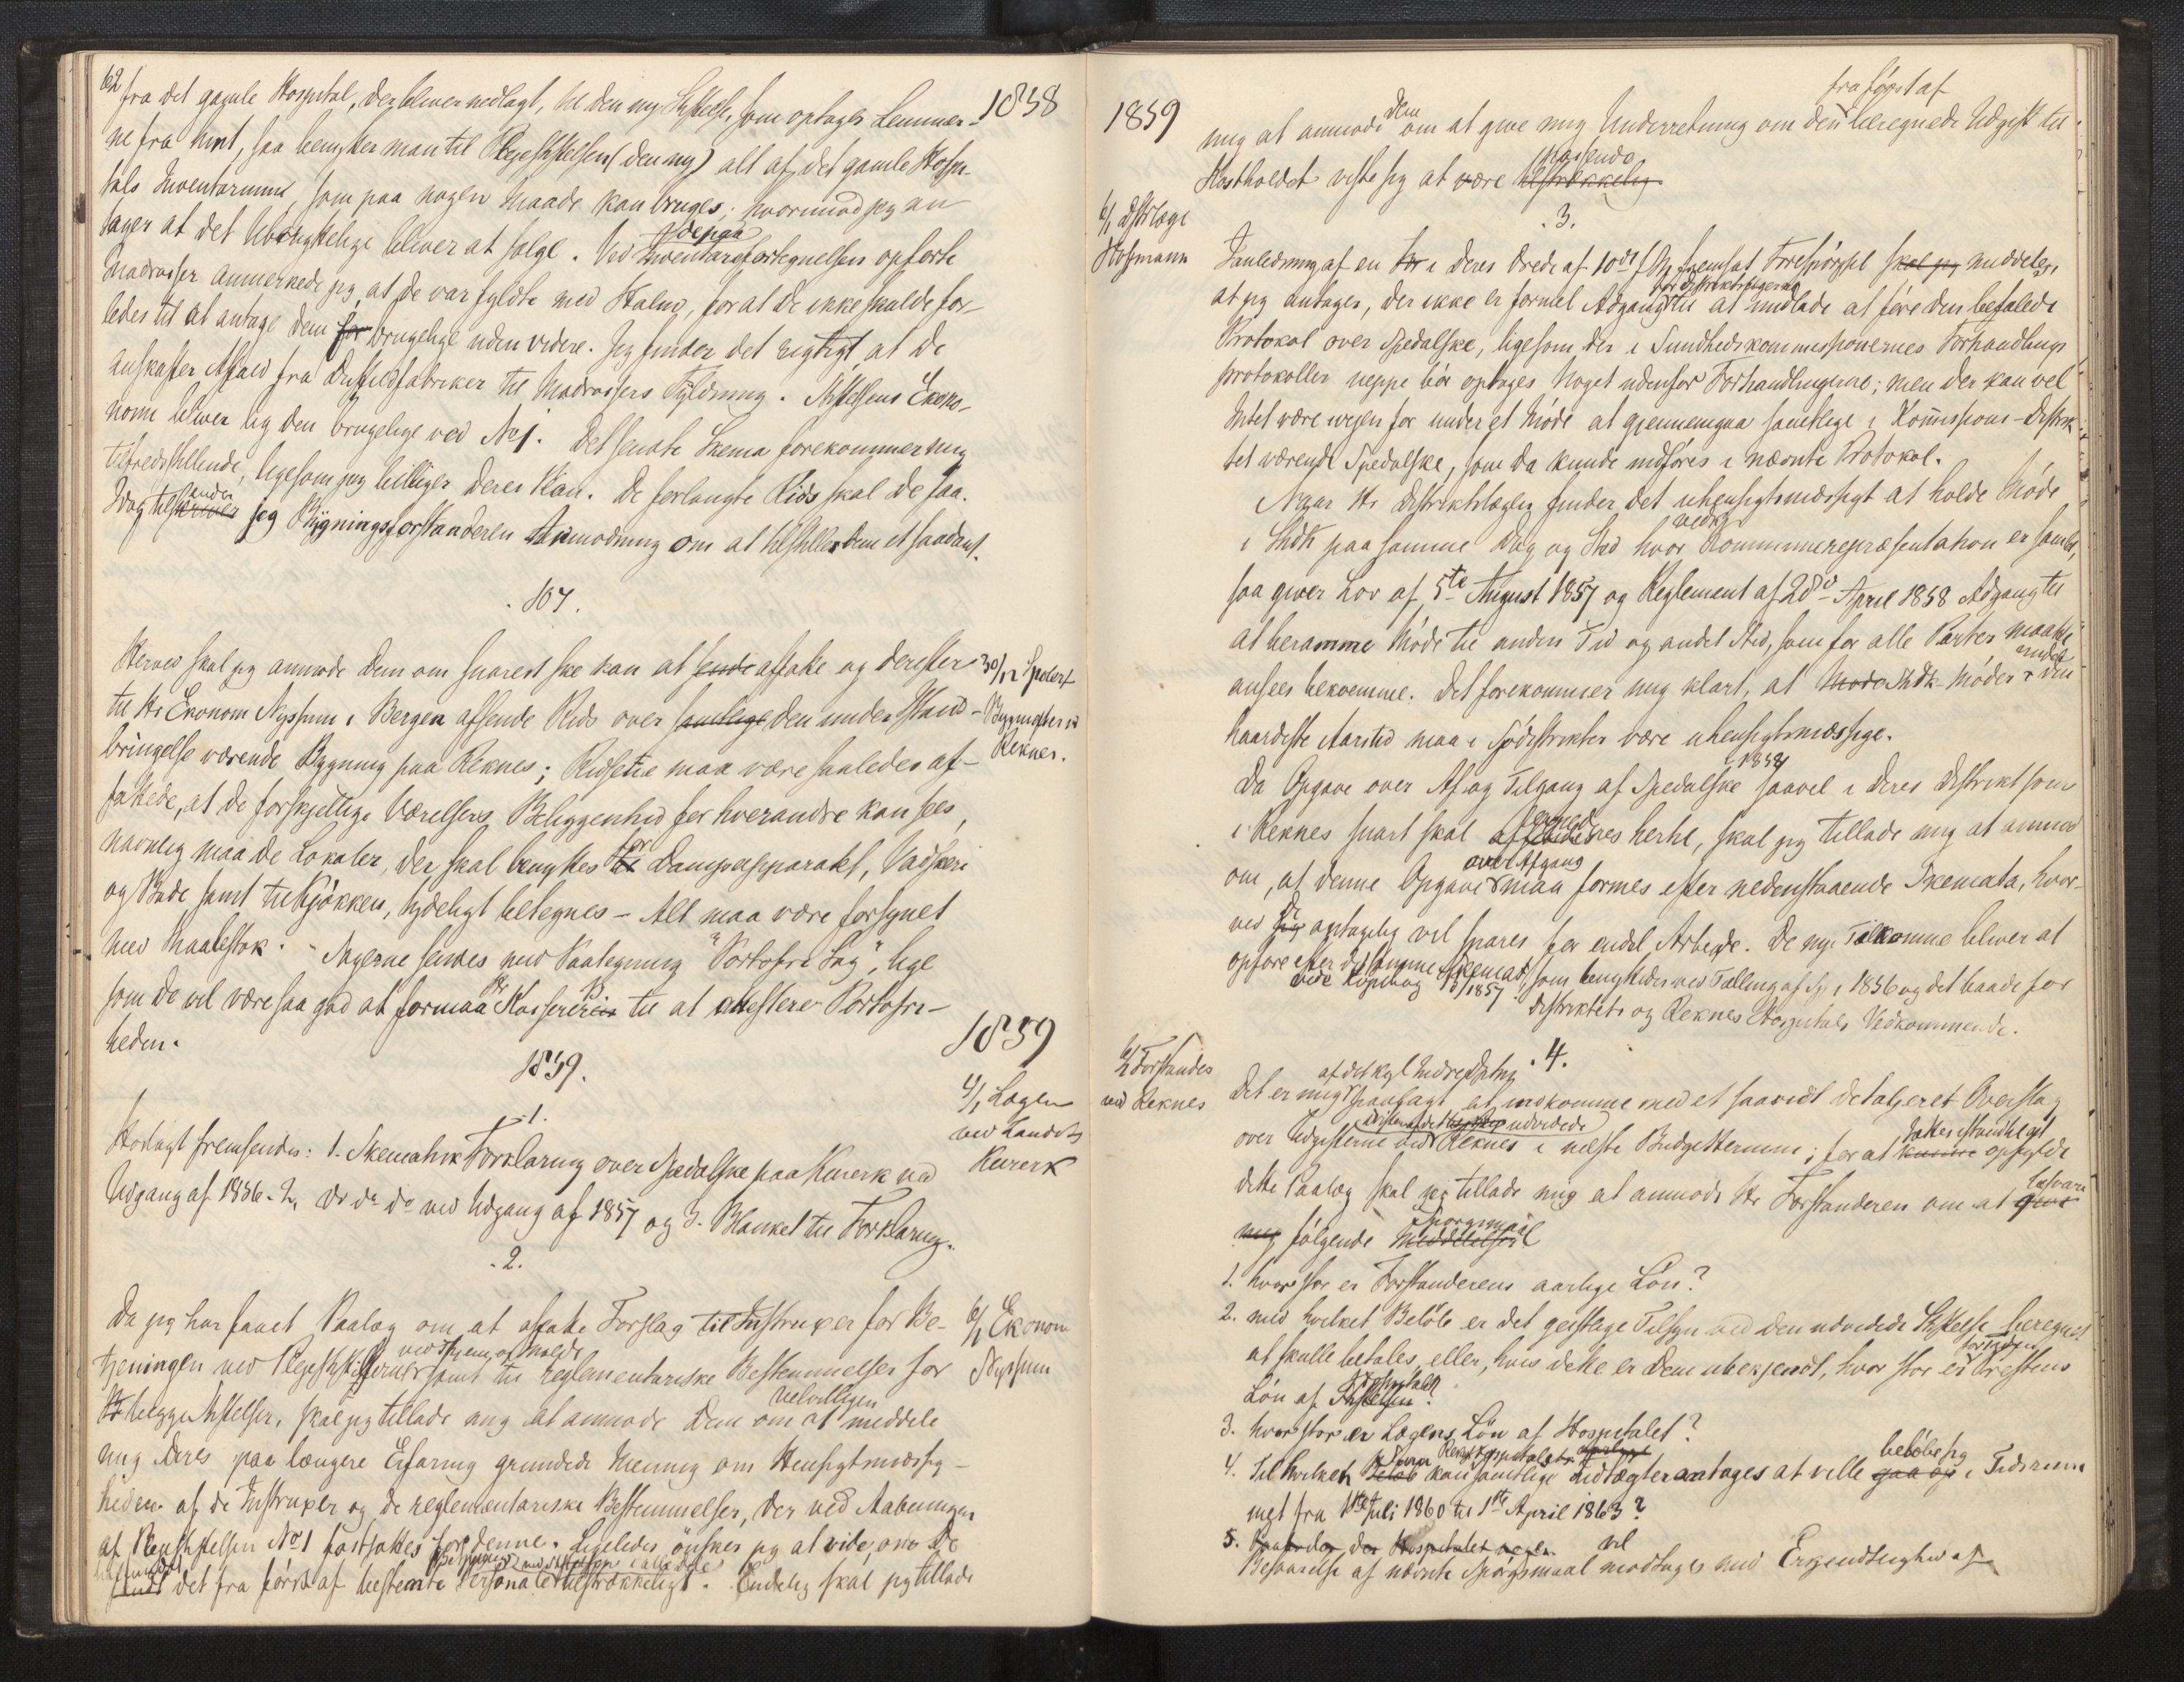 62
1858
fra det gamle Hospital, der bliver nedlagt, til den ny Stiftelse, som optager Lemmer-
ne fra hint, saa benytter man til Plejestiftelsen (den ny) alt af det gamle Hospi-
tals Inventarium, som paa nogen Maade kan bruges; hvorimod jeg an
tager at det Ubenyttelige bliver at sælge. Ved de paa Inventarfortegnelsen opførte
Madrasser anmerkede jeg, at de var fyldte med Halm, for at De ikke skulde for-
ledes til at antage dem for brugelige uden videre. Jeg finder det rigtigt, at De
anskaffer Affald fra fabriker til Madrassers Fyldning. Stiftelsens Økono-
nomi bliver lig den brugelige ved No 1. Det sendte Skema forekommer mig
tilfredsstillende, ligesom jeg billiger Deres Plan. De forlangte Rids skal De faa.
Idag tilsender jeg Bygningsforstanderen Anmodning om at tilstille Dem et saadant.
107.
30/12 Inspekt
Bygmester v
Reknes.
Herved skal jeg anmode Dem om snarest ske kan at sende affatte og derefter
til Hr Økonom Nyssum i Bergen afsende Rids over samtlige den under Istand-
bringelse værende Bygning paa Reknes; Ridsene maa være saaledes af-
fattede, at de forskjellige Værelsers Beliggenhed for hverandre kan sees,
navnlig maa de Lokaler, der skal benyttes til for Dampapparatet, Vaskeri
og Bade samt til Kjøkken, tydeligt betegnes – Alt maa være forsynet
med Maalestok. – Sagerne sendes med Paategning "Portofri Sag", lige
som De vil være saa god at formaa Hr Kassereren til at attestere Portofri-
heden.
1859
1859.
.1.
4/1 Lægen
ved Landets
Kurerk
Hoslagt fremsendes: 1. Skematisk Forklaring over Spedalske paa Kurerk ved
Udgang af 1856. 2, do do do ved Udgang af 1857 og 3. Blanket til Forklaring.
.2.
6/1 Økonom
Nyssum
Da jeg har faaet Paalæg om at affatte Forslag til Instruxer for Be-
tjeningen ved Plejestiftelserne ved Trhjem og Molde samt til reglementariske Bestemmelser for
begge Stiftelser, skal jeg tillade mig at anmode Dem om at velvilligen meddele
mig Deres paa længere Erfaring grundede Mening om Hensigtmæssig-
heden af de Instruxer og de reglementariske Bestemmelser, der ved Aabningen
af Plejestiftelsen No 1 fastsattes for denne. Ligeledes ønskes jeg at vide, om De
det fra først af bestemte Personale tilstrækkeligt. Endelig skal jeg tillade
1859
mig at anmode Dem om at give mig Underretning om den fra først af beregnede Udgift til
Kostholdet viste sig at være passende tilstrækkelig.
.3.
6/1 Dstrlæge
Hofmann
I Anledning af en i Deres Brev af 10de f M. fremsat Forespørgsel skal jeg meddele,
at jeg antager, der ikke er formel Adgang for Distriktslægerne til at undlade at føre den befalede
Protokol over Spedalske, ligesom der i Sundhedskommissionernes Forhandlings
protokoller neppe bør optages Noget udenfor Forhandlingerne; men der kan vel
Intet være ivejen for under et Møde at gjennemgaa samtlige i Kommissions-Distrik
tet værende Spedalske, som da kunde indføres i nævnte Protokol.
Naar Hr Distriktslægen finder det uhensigtsmæssigt at holde Møde
i Shdk paa samme Dag og Sted hvor vedk. Kommunerepræsentation er samlet,
saa giver Lov af 5te August 1857 og Reglement af 28de April 1858 Adgang til
at beramme Møde til anden Tid og andet Sted, som for alle Parter maatte
ansees bekvemme. Det forekommer mig klart, at Møde Shdk-Møder i den
haardeste Aarstid maa i Sødistrikter være uhensigtsmæssige.
Da Opgave over Af- og Tilgang af Spedalske i 1858 saavel i Deres Distrikt som
i Reknes snart skal afsendes herhe, skal jeg tillade mig at anmod
om, at denne Opgave over Afgang maa formes efter nedenstaaende Skemata, hvor-
ved De antagelig vil spares for endel Arbejde. De nye Tilkomne bliver at
opføre efter det samme Skemad, som benyttedes ved Tælling af Sp. i 1856 og det baade for
vide Kopibog 1/1857 Distriktets og Reknes Hospitals Vedkommende.
.4.
6/1 Forstander
ved Reknes
Det er mig af det kgl Indredeptmt paalagt at indkomme med et saavidt detaljeret Overslag
over Udgifterne ved det udvidede Reknes i næste Budgettermin; for at kunne opfylde
dette Paalæg skal jeg tillade mig at anmode Hr Forstanderen om at give besvare
mig følgende Meddelelser Spørgsmaal
1. hvor stor er Forstanderens aarlige Løn?
2. med hvilket Beløb er det geistlige Tilsyn ved den udvidede Stiftelse beregnet
at skulle betales, eller, hvis dette er Dem ubekjendt, hvor stor er for Tiden Prestens
Løn af Hospitalet Stiftelsen?
3. hvor stor er Lægens Løn af Hospitalet?
4. Til hvilken Sum Beløb kan Reknes Hospitalets samtlige Indtægter antages at ville beløbe sig gaa op i Tidsrum
met fra 1ste Juli 1860 til 1ste April 1863?
5. der Hospitalet
Besvarelse af nævnte Spørgsmaal vil modtages med Erkjendtlighed af